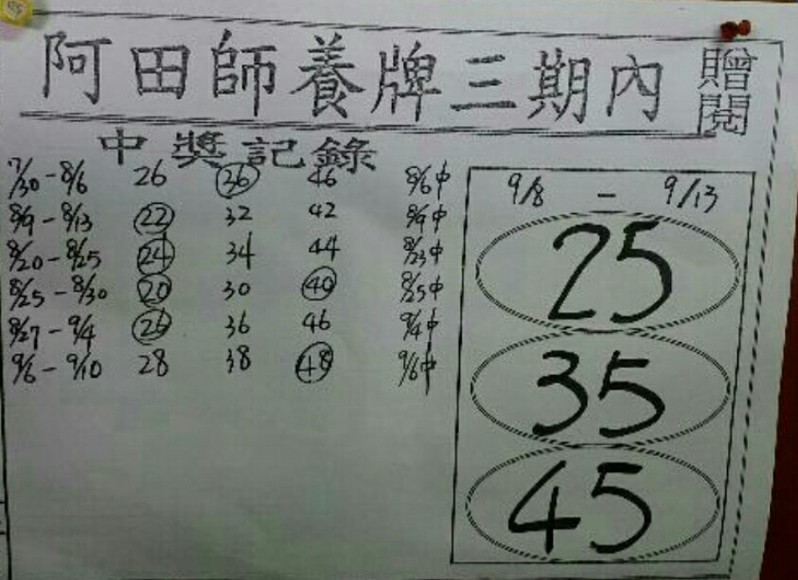 阿田師養牌三期內
贈閱
中獎記錄
7/30-8/6 26 36 46 8/6中
8/9-8/13 22 32 42 8/9中
8/20-8/25 24 34 44 8/23中
8/25-8/30 20 30 40 8/25中
8/27-9/4 26 36 46 9/4中
9/6-9/10 28 38 48 9/6中
9/8 - 9/13
25
35
45